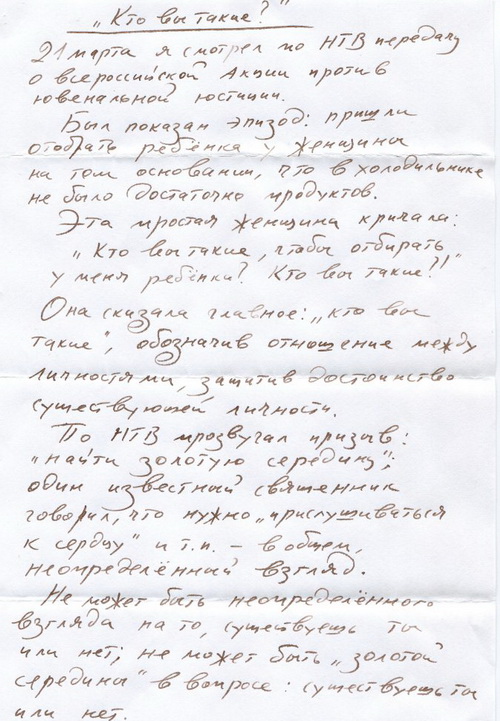 „Кто вы такие?"
21 марта я смотрел по НТВ передачу
о всероссийской Акции против
ювенальной юстиции.
Был показан эпизод: пришли
отобрать ребёнка у женщины
на том основании, что в холодильнике
не было достаточно продуктов.
Эта простая женщина кричала:
„Кто вы такие, чтобы отбирать
у меня ребёнка? Кто вы такие?!"
Она сказала главное: „кто вы
такие", обозначив отношение между
личностями, защитив достоинство
существующей личности.
По НТВ прозвучал призыв:
„найти золотую середину";
один известный священник
говорил, что нужно „прислушиваться
к сердцу" и т.п. – в общем,
неопределённый взгляд.
Не может быть неопределённого
взгляда на то, существуешь ты
или нет; не может быть „золотой
середины" в вопросе: существуешь ты
или нет.